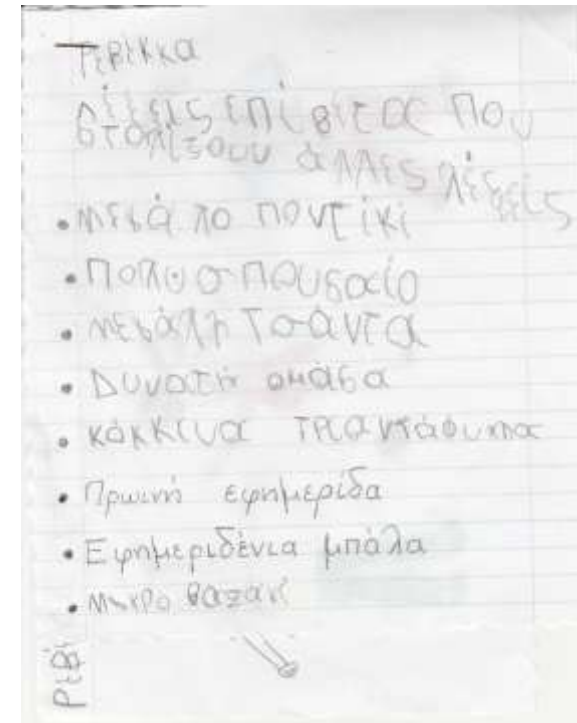 Τεβεκκα
λέξεις επίθετα που
στολίζουν άλλες λέξεις
• μεγάλο ποντίκι
• Πολυ σπουδαίο
• μεγάλη τσάντα
• Δυνατή ομάδα
• κόκκινα τριαντάφυλλα
• Πρωινή εφημερίδα
• Εφημεριδένια μπάλα
• μικρο βαζακι
ρεβε